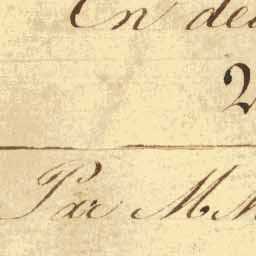 En de
2
Par M